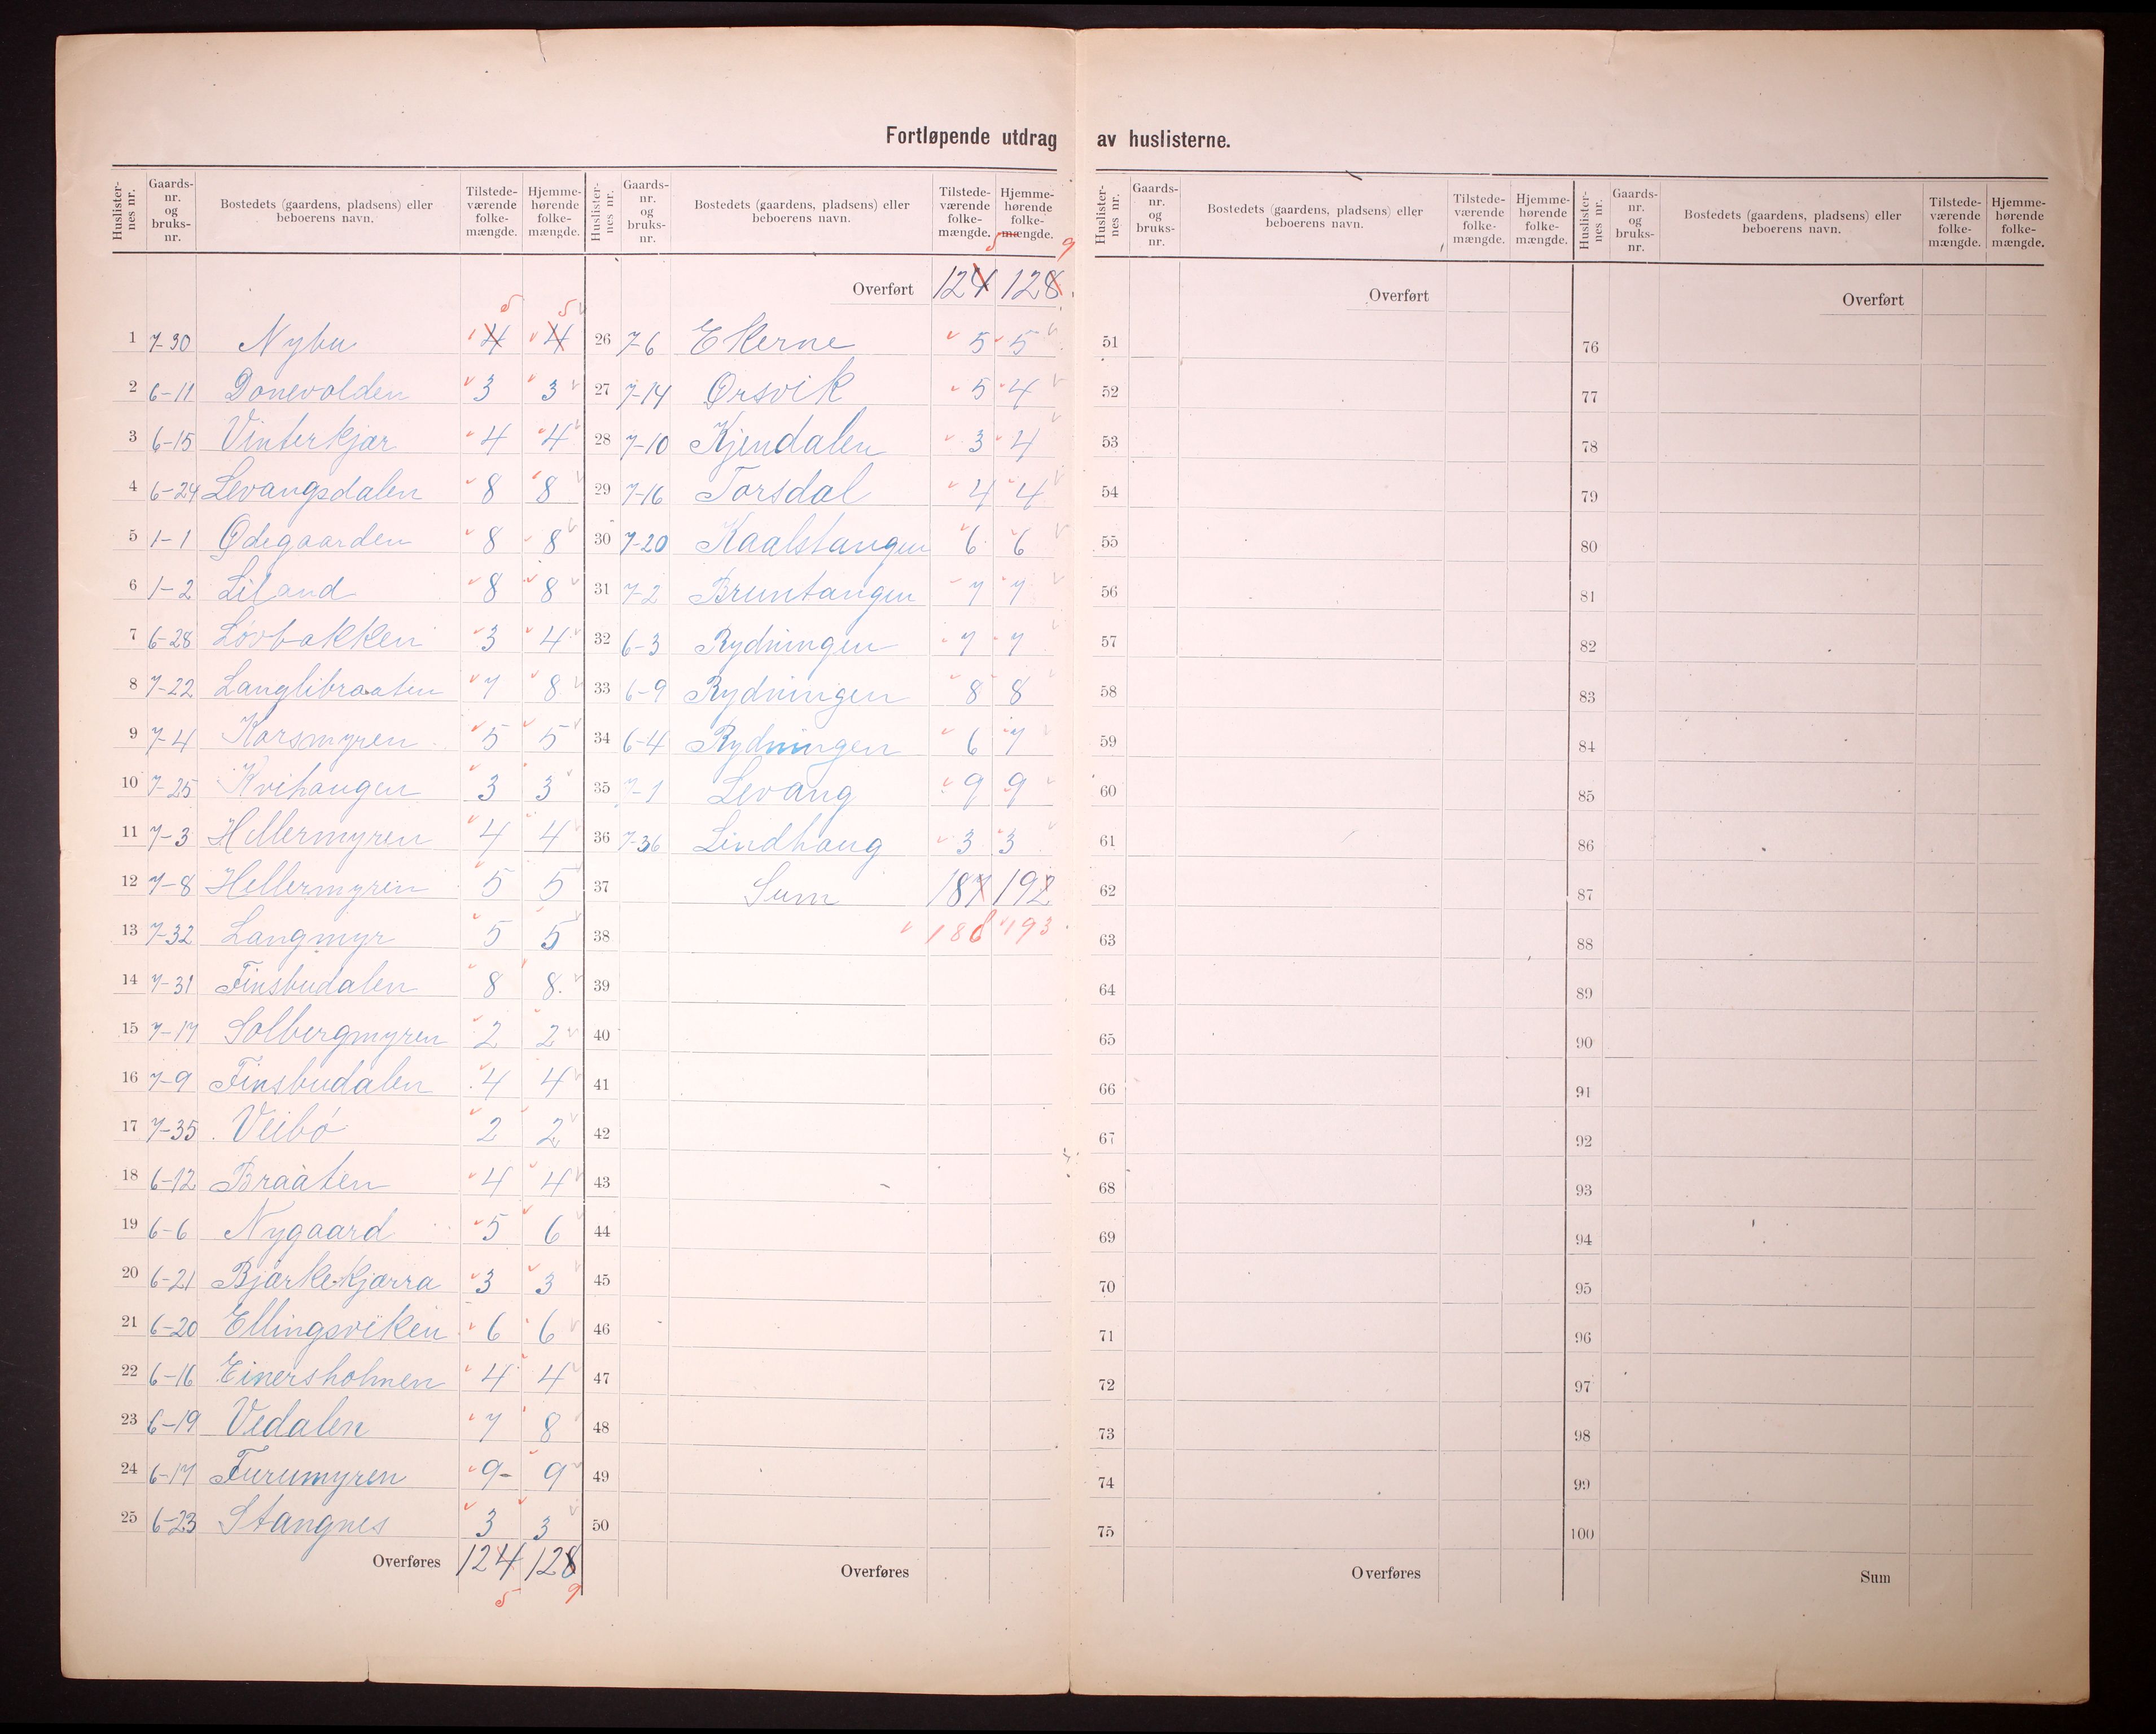 Fortløpende utdrag av huslisterne.
Huslisternes nr. Gaards-nr. og bruks-nr. Bostedets (gaardens, pladsens) eller beboerens navn. Tilstedeværende folkemængde. Hjemmehørende folkemængde.
1 7-30 Nybu 4 5 4 5
2 6-11 Donevolden 3 3
3 6-15 Vinterkjær 4 4
4 6-24 Levangsdalen 8 8
5 1-1 Ødegaarden 8 8
6 1-2 Liland 8 8
7 6-28 Løvbakken 3 4
8 7-22 Langlibraaten 7 8
9 7-4 Korsmyren 5 5
10 7-25 Kvihaugen 3 3
11 7-3 Hellermyren 4 4
12 7-8 Hellermyren 5 5
13 7-32 Langmyr 5 5
14 7-31 Finsbudalen 8 8.
15 7-17 Solbergmyren 2 2
16 7-9 Finsbudalen 4 4
17 7-35 Veibö 2 2
18 6-12 Braaten 4 4
19 6-6 Nygaard 5 6
20 6-21 Bjørkekjærra 3 3
21 6-20 Ellingsviken 6 6
22 6-16 Einersholmen 4 4
23 6-19 Vedalen 7 8
24 6-17 Furumyren 9- 9
25 6-23 Stangnes 3 3
Overføres 124 128
5 9
Huslisternes nr. Gaards-nr. og bruks-nr. Bostedets (gaardens, pladsens) eller beboerens navn. Tilstedeværende folkemængde. Hjemmehørende folkemængde.
5 9
Overført 124 128
26 7-6 Ekerne 5 5
27 7-14 Ørsvik 5 4
28 7-10 Kjendalen 3 4
29 7-16 Torsdal 4 4
30 7-20 Kaalstangen 6 6
31 7-2 Bruntangen 7 7
32 6-3 Rydningen 7 7
33 6-9 Rydningen 8 8
34 6-4 Rydningen 6 7
35 7-1 Levang 9 9
36 7-36 Lindhaug 3 3
37 Sum 187 192
38 188 193
39
40
41
42
43
44
45
46
47
48
49
50
Overføres
Huslisternes nr. Gaards-nr. og bruks-nr. Bostedets (gaardens, pladsens) eller beboerens navn. Tilstedeværende folkemængde. Hjemmehørende folkemængde.
Overført
51
52
53
54
55
56
57
58
59
60
61
62
63
64
65
66
67
68
69
70
71
72
73
74
75
Overføres
Huslisternes nr. Gaards-nr. og bruks-nr. Bostedets (gaardens, pladsens) eller beboerens navn. Tilstedeværende folkemængde. Hjemmehørende folkemængde.
Overført
76
77
78
79
80
81
82
83
84
85
86
87
88
89
90
91
92
93
94
95
96
97
98
99
100
Sum